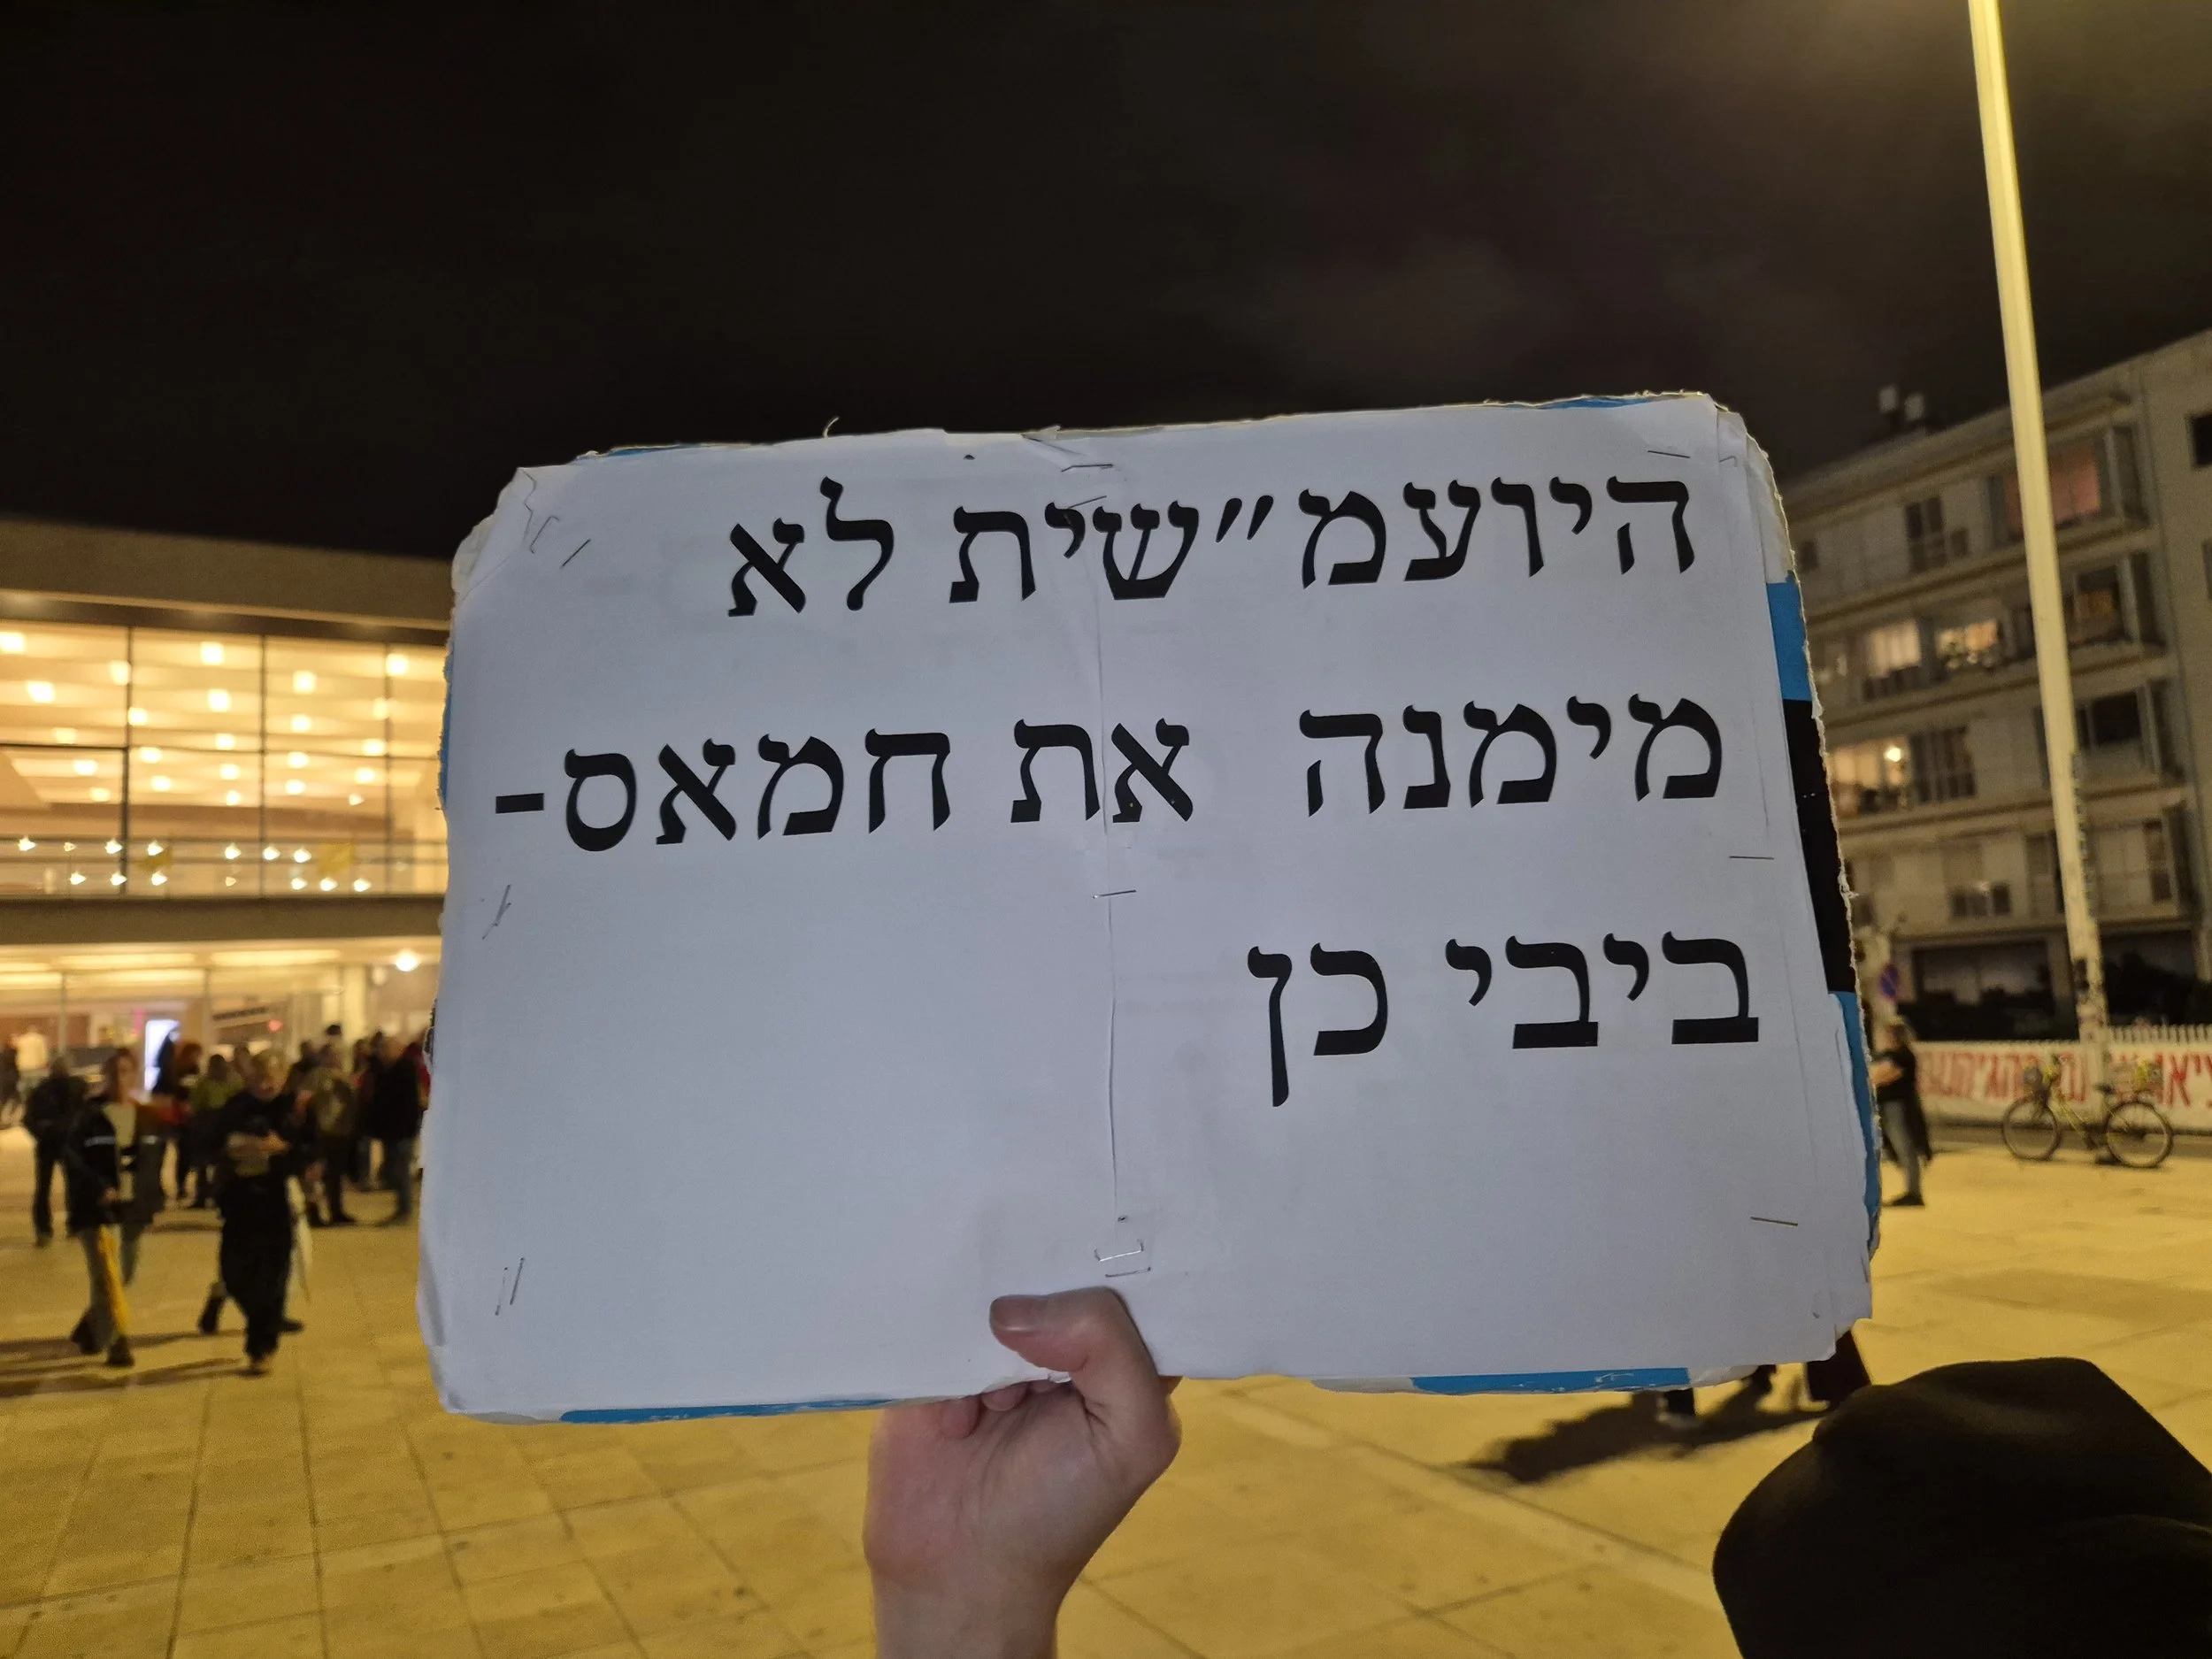 היועמ״שית לא
מימנה את חמאס-
ביבי כן